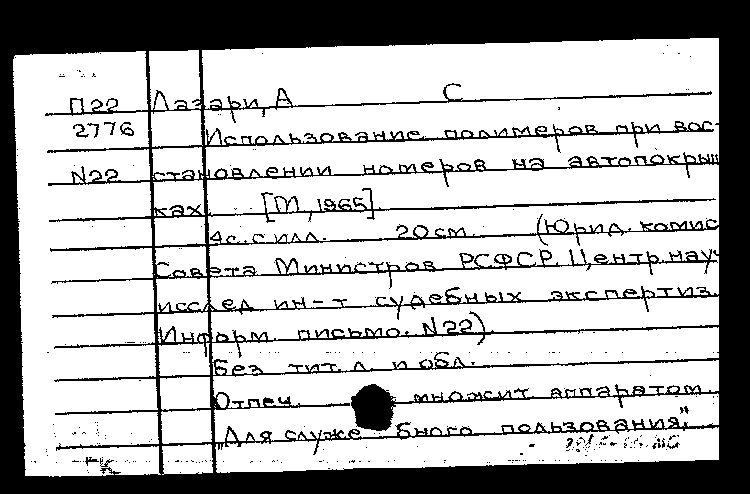 П22 Лазари, А С
2776 Использование полимеров при вос-
N22 становлении номеров на автопокрыш
ках. [М, 1965].
4с. с илл. 20 см. (Юрид. комис
Совета Министров РСФСР. Центр. науч
исслед ин-т судебных экспертиз.
Информ. письмо. N22).
Без тит. л. и обл.
Отпеч. множит аппаратом.
"Для служебного пользования."
ГК